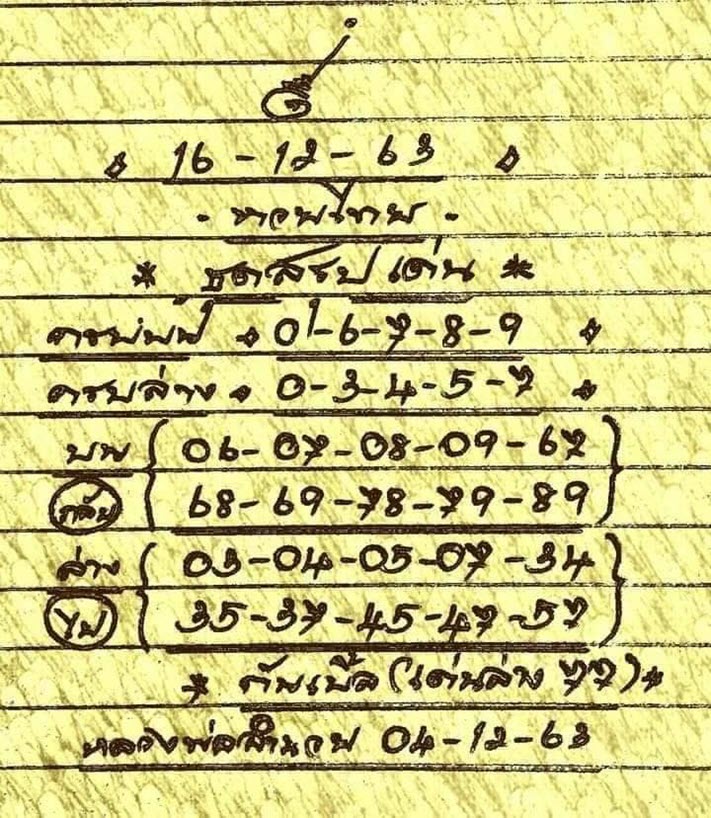 16 - 12 - 63
- หวยไทย -
* ชุดสรุปเด่น *
ครบบน 0-6-7-8-9
ครบล่าง 0-3-4-5-7
บน { 06-07-08-09-67 }
กลับ { 68-69-78-79-89 }
ล่าง { 03-04-05-07-34 }
ไป { 35-37-45-47-57 }
* กันเบิ้ล (เด่นล่าง 77) *
หลวงพ่อสำนวน 04-12-63